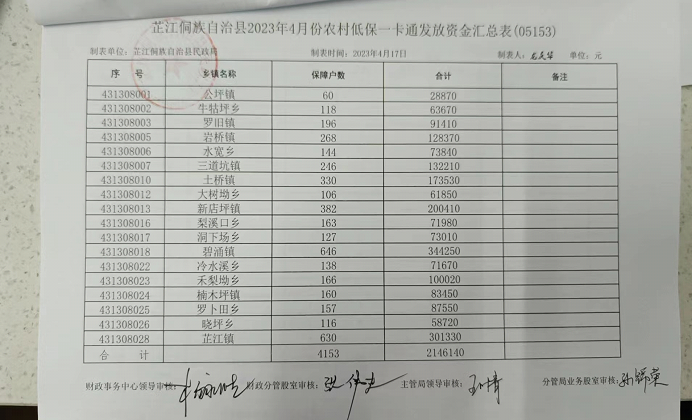 芷江侗族自治县2023年4月份农村低保一卡通发放资金汇总表(05153)
制表单位：芷江侗族自治县民政局 制表时间：2023年4月17日 制表人： 单位：元
序 号 乡镇名称 保障户数 合计 备注
431308001 公坪镇 60 28870
431308002 牛牯坪乡 118 63670
431308003 罗旧镇 196 91410
431308005 岩桥镇 268 128370
431308006 水宽乡 144 73840
431308007 三道坑镇 246 132210
431308010 土桥镇 330 173530
431308012 大树坳乡 106 61850
431308013 新店坪镇 382 200410
431308016 梨溪口乡 163 71980
431308017 洞下场乡 127 73010
431308018 碧涌镇 646 344250
431308022 冷水溪乡 138 71670
431308023 禾梨坳乡 166 100020
431308024 楠木坪镇 160 83450
431308025 罗卜田乡 157 87550
431308026 晓坪乡 116 58720
431308028 芷江镇 630 301330
合 计 4153 2146140
财政事务中心领导审核： 财政分管股室审核： 主管局领导审核： 分管局业务股室审核：